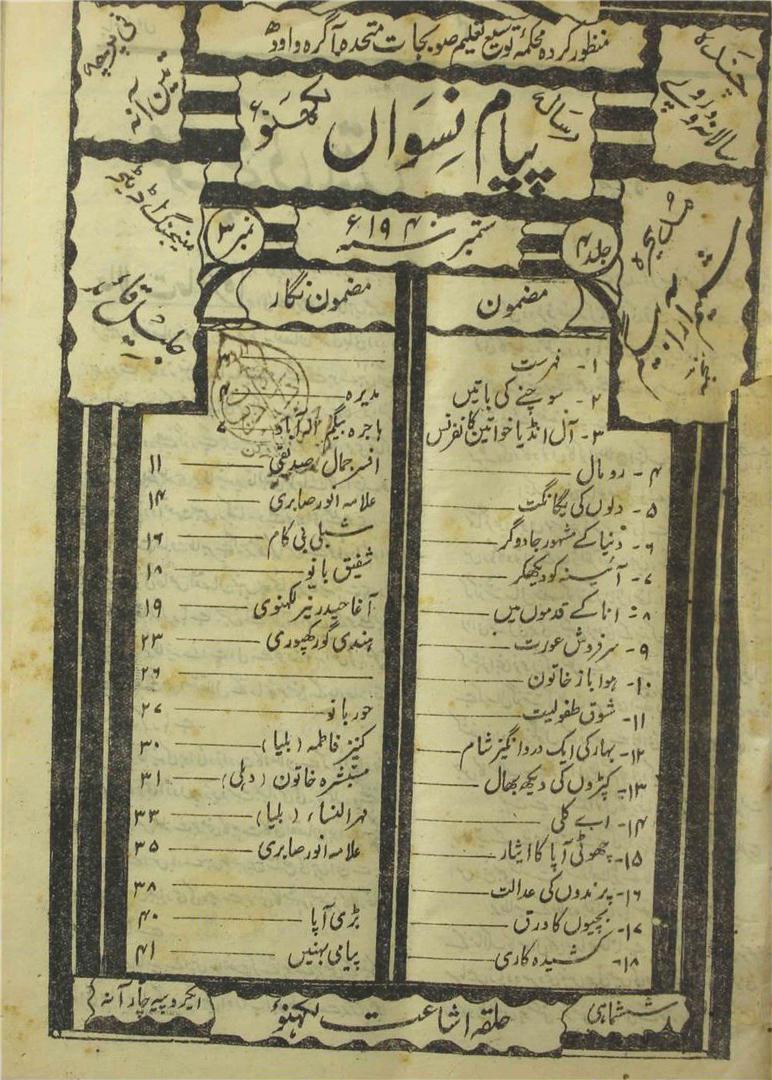 منظور کردہ محکمۂ توسیع تعلیم صوبجات متحدہ آگرہ و اودھ
چندہ
سالانہ دو روپے
فی پرچہ
تین آنہ
رسالہ پیام نسواں لکھنؤ
جلد ۴
ستمبر سنہ ۱۹۴۰ء
نمبر ۳
مدیرہ
شمیم آرا بیگم
منیجنگ اڈیٹر
مضمون
مضمون نگار
۱- فہرست ۳
۲- سوچنے کی باتیں مدیرہ ۴
۳- آل انڈیا خواتین کانفرنس ہاجرہ بیگم الہ آباد
۴- رومال افسر جمال صدیقی ۱۱
۵- دلوں کی یگانگت علامہ انور صابری ۱۴
۶- دنیا کے مشہور جادوگر شبلی بی کام ۱۶
۷- آئینہ کو دیکھکر شفیق بانو ۱۸
۸- انا کے قدموں میں آغا حیدر نیر لکہنوی ۱۹
۹- سرفروش عورت ہندی گورکھپوری ۲۳
۱۰- ہوا باز خاتون ۲۶
۱۱- شوق طفولیت حور بانو ۲۷
۱۲- بہار کی ایک درد انگیز شام کنیز فاطمہ (بلیا) ۳۰
۱۳- کپڑوں کی دیکھ بھال مبشرہ خاتون (دہلی) ۳۱
۱۴- اے کلی مہرالنساء (بلیا) ۳۳
۱۵- چھوٹی آپا کا ایثار علامہ انور صابری ۳۵
۱۶- پرندوں کی عدالت ۳۸
۱۷- بچیوں کا ورق بڑی آپا ۴۰
۱۸- کشیدہ کاری پیامی بہنیں ۴۱
ششماہی
حلقہ اشاعت لکہنؤ
ایکروپیہ چار آنہ